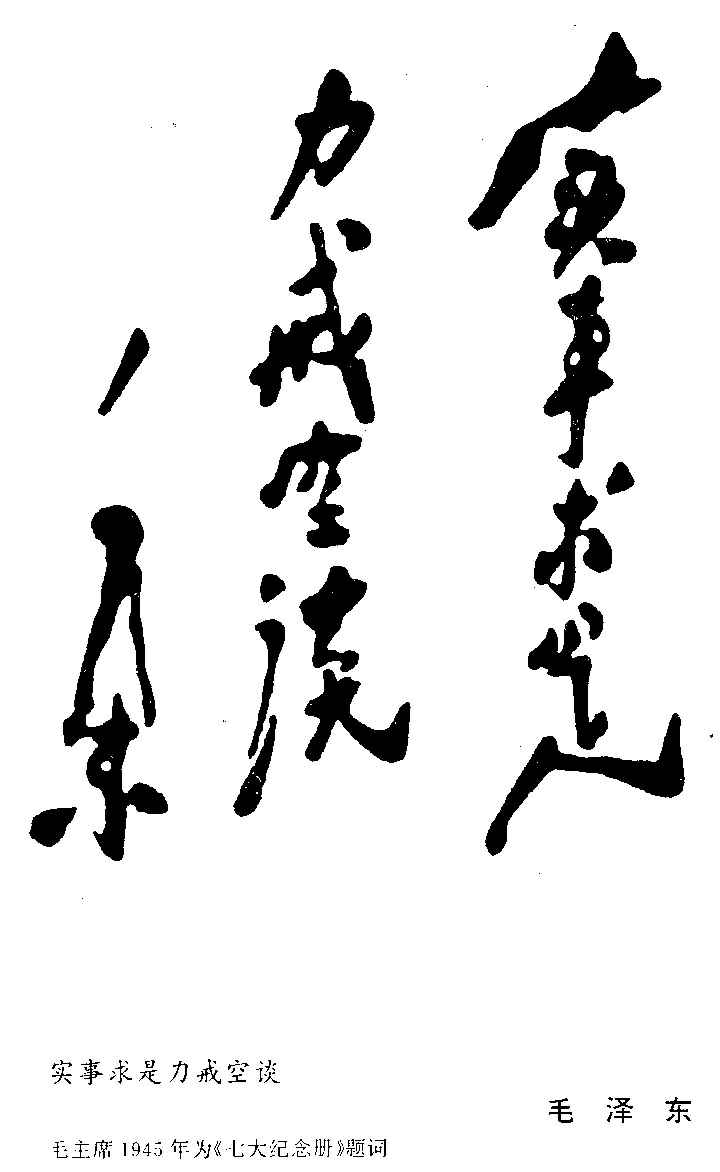 实事求是
力戒空谈
毛泽东
实事求是力戒空谈
毛泽东
毛主席1945年为《七大纪念册》题词